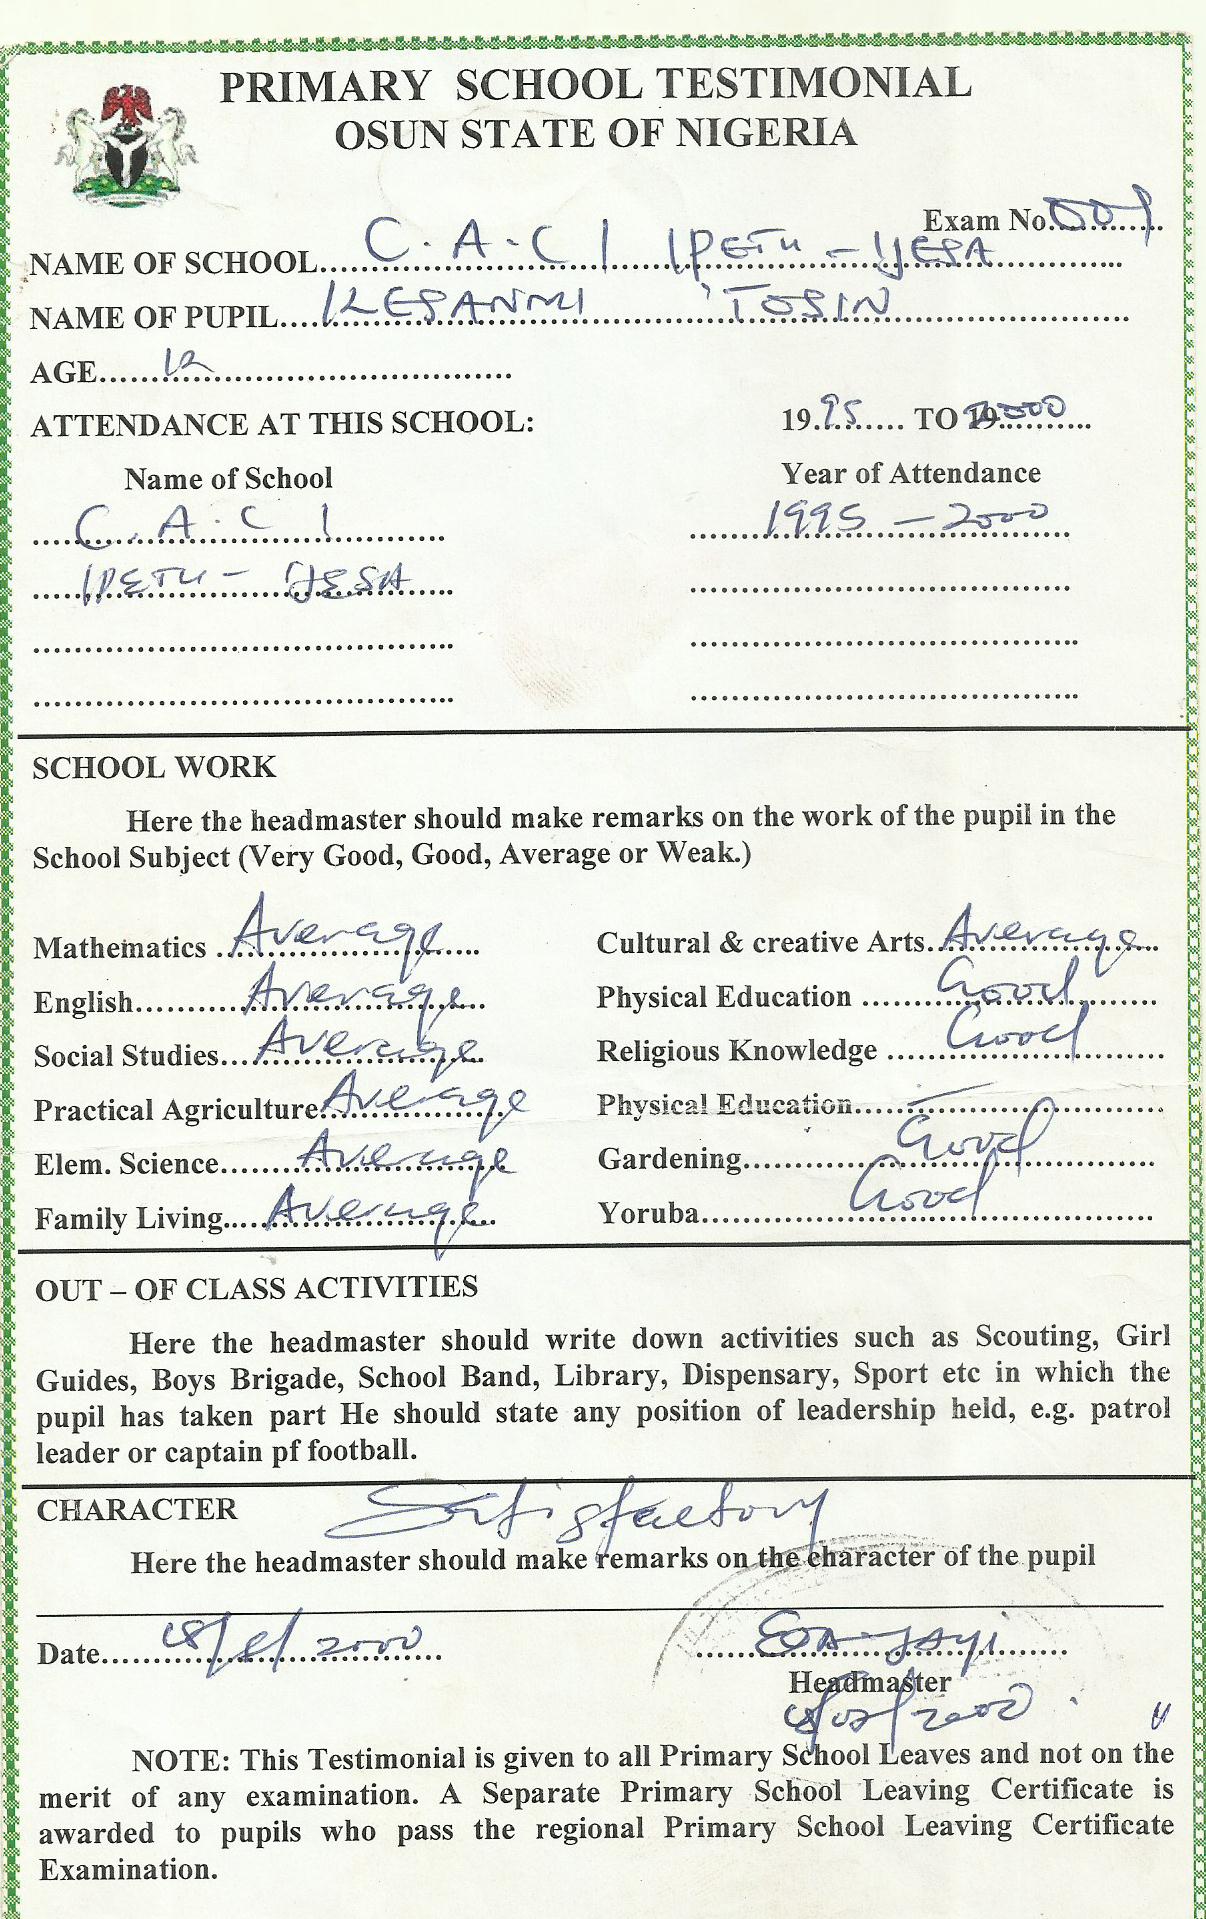 PRIMARY SCHOOL TESTIMONIAL
OSUN STATE OF NIGERIA
Exam No. 009
NAME OF SCHOOL C.A.C I IPETU - IJESA
NAME OF PUPIL KESANMI TOSIN
AGE 12
ATTENDANCE AT THIS SCHOOL: 1995 TO 19 2000
Name of School Year of Attendance
C.A.C I 1995 - 2000
IPETU - IJESA
SCHOOL WORK
Here the headmaster should make remarks on the work of the pupil in the
School Subject (Very Good, Good, Average or Weak.)
Mathematics Average Cultural & creative Arts Average
English Average Physical Education Good
Social Studies Average Religious Knowledge Good
Practical Agriculture Average Physical Education —
Elem. Science Average Gardening Good
Family Living Average Yoruba Good
OUT – OF CLASS ACTIVITIES
Here the headmaster should write down activities such as Scouting, Girl
Guides, Boys Brigade, School Band, Library, Dispensary, Sport etc in which the
pupil has taken part He should state any position of leadership held, e.g. patrol
leader or captain pf football.
CHARACTER Satisfactory
Here the headmaster should make remarks on the character of the pupil
Date
Headmaster
NOTE: This Testimonial is given to all Primary School Leaves and not on the
merit of any examination. A Separate Primary School Leaving Certificate is
awarded to pupils who pass the regional Primary School Leaving Certificate
Examination.